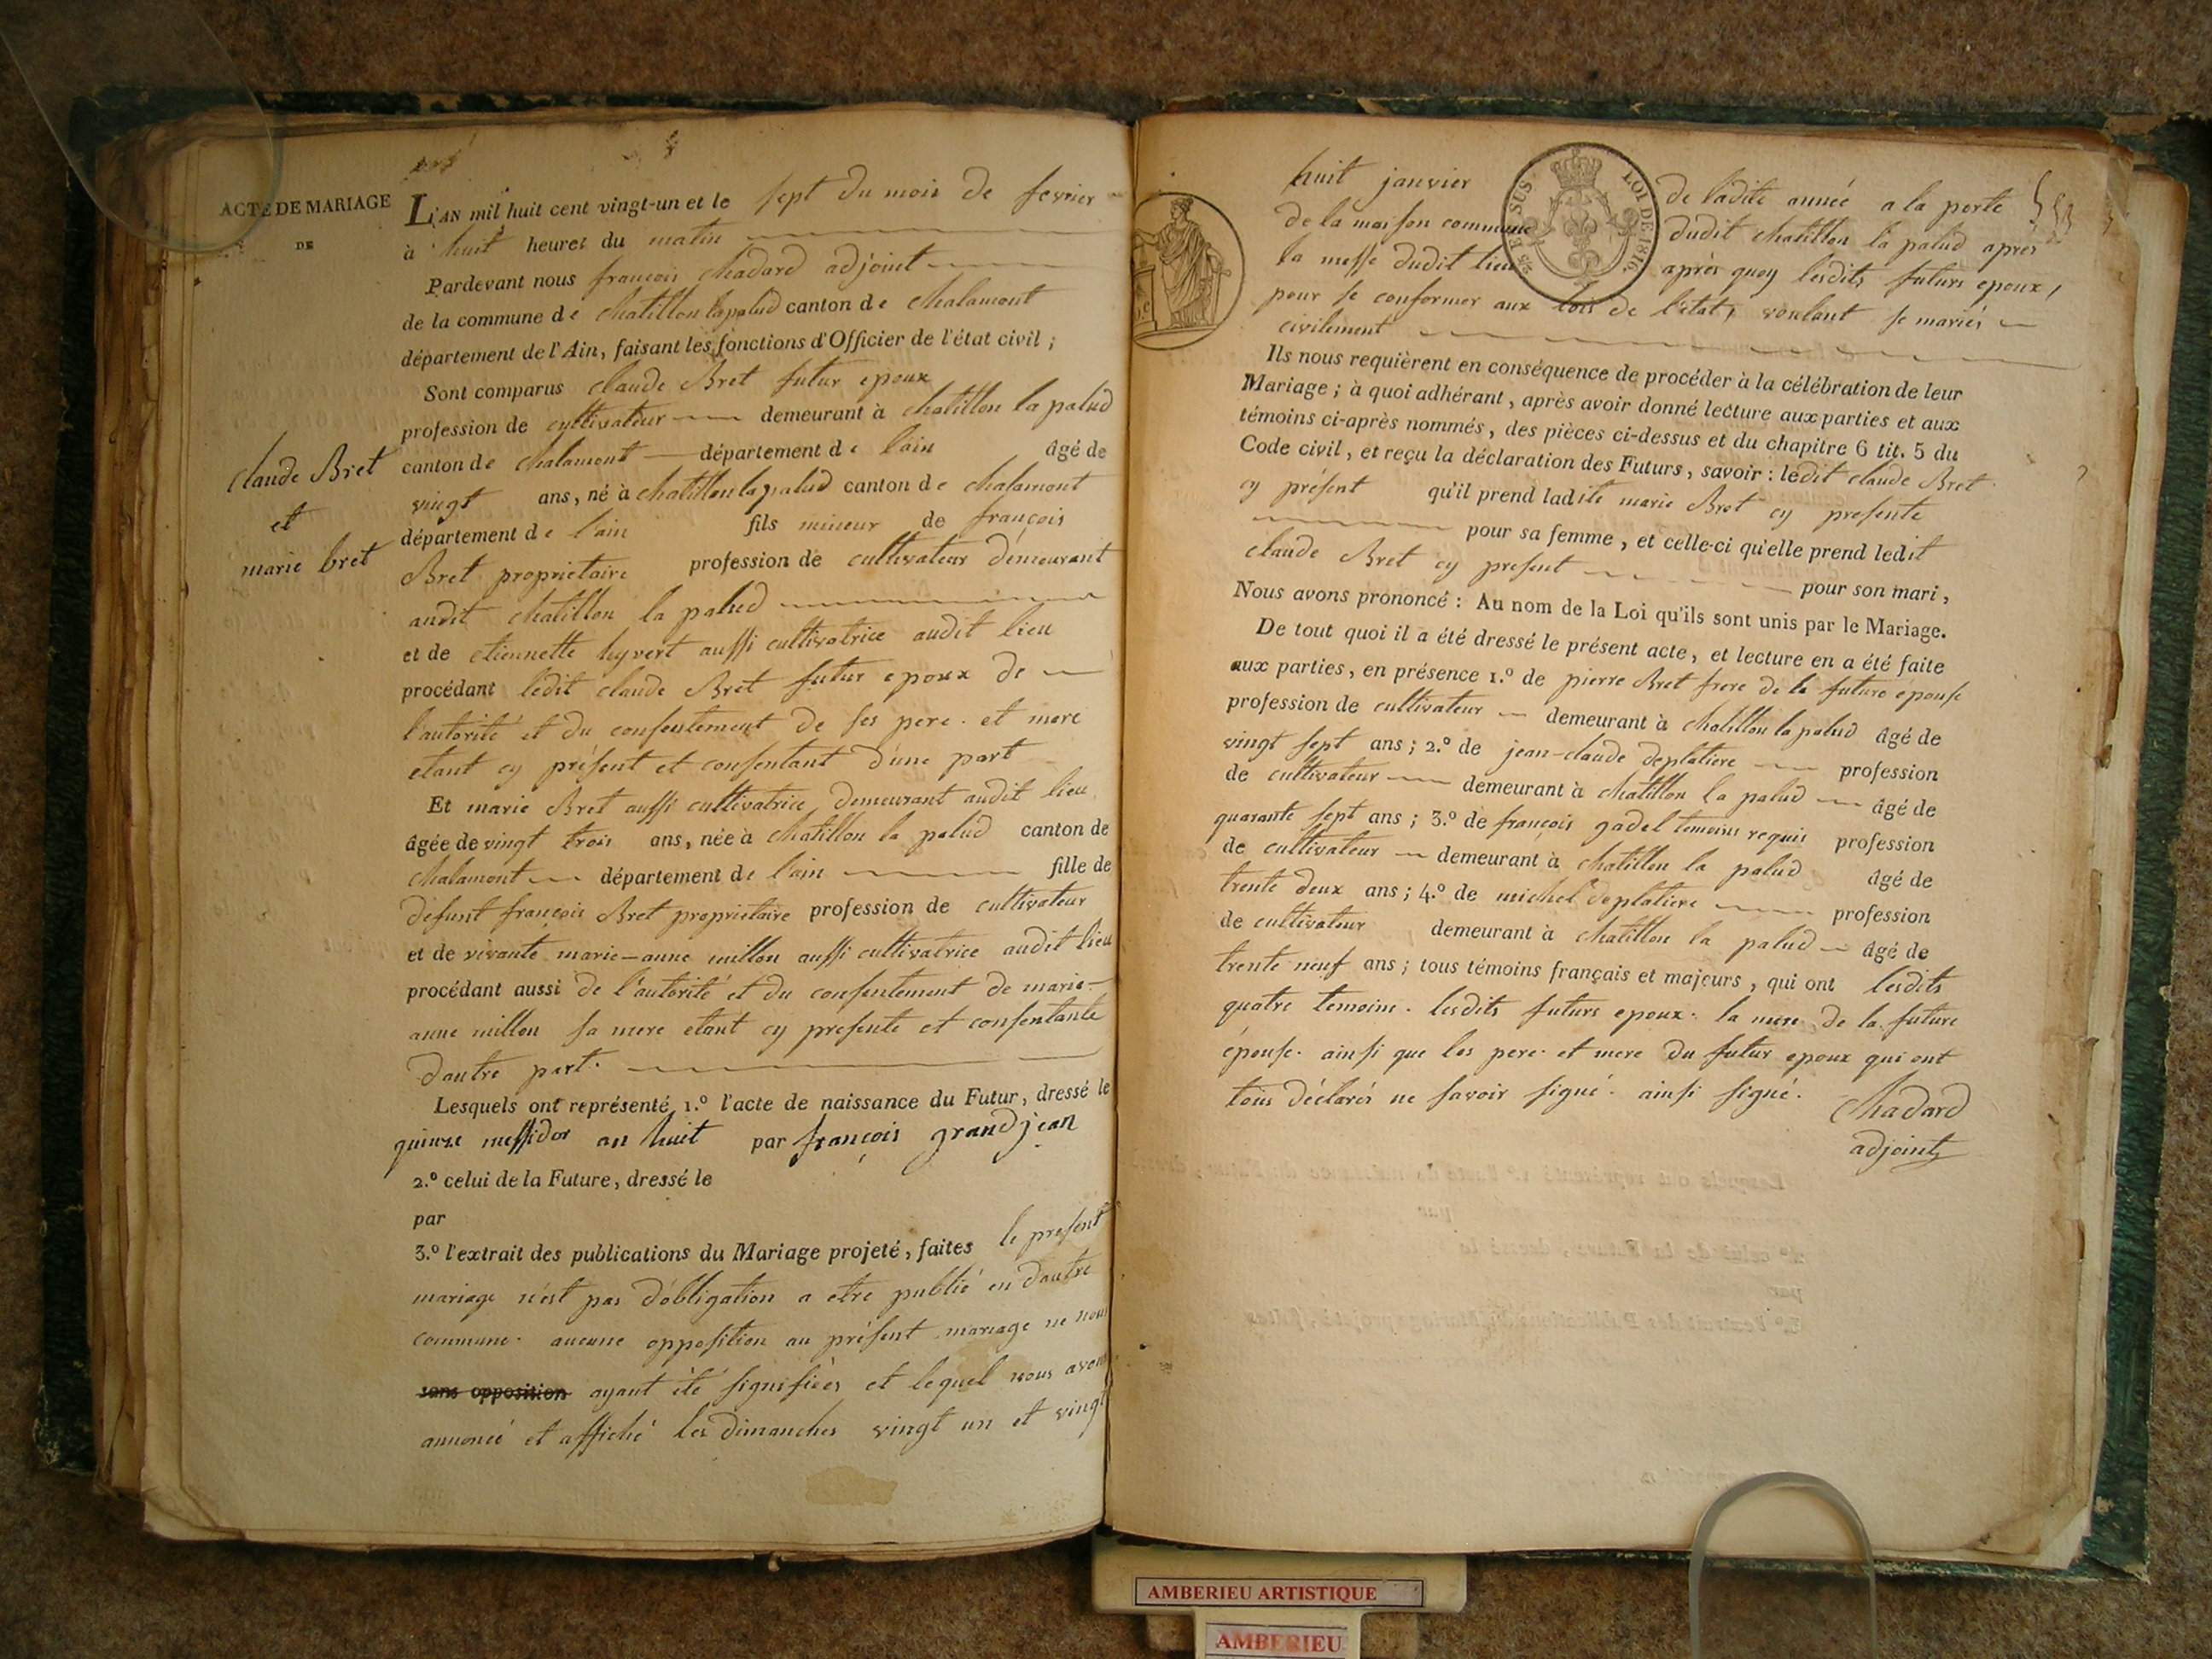 ACTE DE MARIAGE
DE
claude Bret
et
marie bret
L'AN mil huit cent vingt-un et le sept du mois de fevrier
à huit heures du matin
Pardevant nous françois chadard adjoint
de la commune de chatillon lapalud canton de chalamont
département de l'Ain, faisant les fonctions d'Officier de l'état civil ;
Sont comparus claude Bret futur epoux
profession de cultivateur demeurant à chatillon la palud
canton de chalamont département de lain âgé de
vingt ans, né à chatillon lapalud canton de chalamont
département de l'ain fils mineur de françois
Bret proprietaire profession de cultivateur demeurant
audit chatillon la palud
et de etiennette hyvert aussi cultivatrice audit lieu
procédant ledit claude Bret futur epoux de
l'autorité et du consentement de ses pere et mere
etant cy présent et consentant d'une part
Et marie Bret aussi cultivatrice demeurant audit lieu
âgée de vingt trois ans, née à chatillon la palud canton de
chalamont département de l'ain fille de
défunt françois Bret proprietaire profession de cultivateur
et de vivante marie-anne millon aussi cultivatrice audit lieu
procédant aussi de l'autorité et du consentement de marie-
anne millon sa mere etant cy presente et consentante
dautre part.
Lesquels ont représenté 1.º l'acte de naissance du Futur, dressé le
quinze messidor an huit par françois grandjean
2.º celui de la Future, dressé le
par
3.º l'extrait des publications du Mariage projeté, faites le present
mariage n'est pas d'obligation a etre publié en dautre
commune. aucune opposition au présent mariage ne nous
sans opposition ayant été signifiées et lequel nous avons
annoncé et affiché les dimanches vingt un et vingt
huit janvier de ladite année a la porte
de la maison commune dudit chatillon la palud après
la messe dudit lieu après quoy lesdits futurs epoux,
pour se conformer aux lois de l'état, voulant se mariés
civilement
2/5 E SUS. LOI DE 1816.
Ils nous requièrent en conséquence de procéder à la célébration de leur
Mariage ; à quoi adhérant, après avoir donné lecture aux parties et aux
témoins ci-après nommés, des pièces ci-dessus et du chapitre 6 tit. 5 du
Code civil, et reçu la déclaration des Futurs, savoir : ledit claude Bret
cy présent qu'il prend ladite marie Bret cy presente
pour sa femme, et celle-ci qu'elle prend ledit
claude Bret cy present pour son mari,
Nous avons prononcé : Au nom de la Loi qu'ils sont unis par le Mariage.
De tout quoi il a été dressé le présent acte, et lecture en a été faite
aux parties, en présence 1.º de pierre Bret frere de la future épouse
profession de cultivateur demeurant à chatillon la palud âgé de
vingt sept ans ; 2.º de jean-claude deplatiere profession
de cultivateur demeurant à chatillon la palud âgé de
quarante sept ans ; 3.º de françois gadel temoins requis profession
de cultivateur demeurant à chatillon la palud âgé de
trente deux ans ; 4.º de michel deplatiere profession
de cultivateur demeurant à chatillon la palud âgé de
trente neuf ans ; tous témoins français et majeurs, qui ont lesdits
quatre temoins. lesdits futurs epoux. la mere de la future
épouse. ainsi que les pere et mere du futur epoux qui ont
tous déclarés ne savoir signé. ainsi signé. Chadard
adjoint
AMBERIEU ARTISTIQUE
AMBERIEU